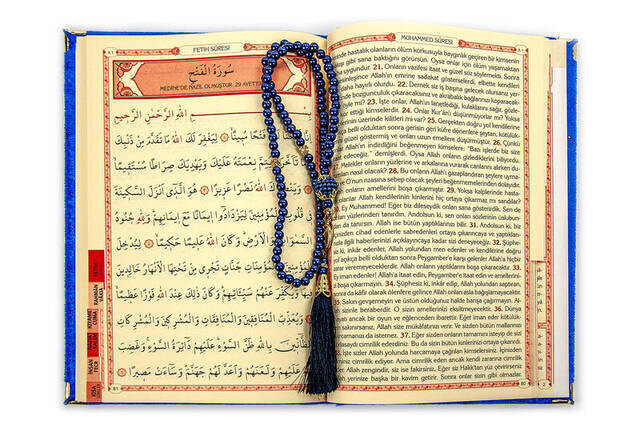 FETİH SÛRESİ
سُورَةُ الْفَتْحِ
MEDİNE'DE NAZİL OLMUŞTUR. 29 AYETTİR
اللّٰهِ الرَّحْمٰنِ الرَّحِيمِ
فَتْحًا مُبِينًا لِيَغْفِرَ لَكَ اللّٰهُ مَا تَقَدَّمَ مِنْ ذَنْبِكَ
تَأَخَّرَ وَيُتِمَّ نِعْمَتَهُ عَلَيْكَ وَيَهْدِيَكَ صِرَاطًا مُسْتَقِيمًا
اللّٰهُ نَصْرًا عَزِيزًا هُوَ الَّذِي أَنْزَلَ السَّكِينَةَ
فِي قُلُوبِ الْمُؤْمِنِينَ لِيَزْدَادُوا إِيمَانًا مَعَ إِيمَانِهِمْ وَلِلّٰهِ جُنُودُ
السَّمٰوَاتِ وَالْأَرْضِ وَكَانَ اللّٰهُ عَلِيمًا حَكِيمًا لِيُدْخِلَ
الْمُؤْمِنِينَ وَالْمُؤْمِنَاتِ جَنَّاتٍ تَجْرِي مِنْ تَحْتِهَا الْأَنْهَارُ خَالِدِينَ
فِيهَا وَيُكَفِّرَ عَنْهُمْ سَيِّئَاتِهِمْ وَكَانَ ذٰلِكَ عِنْدَ اللّٰهِ فَوْزًا عَظِيمًا
وَيُعَذِّبَ الْمُنَافِقِينَ وَالْمُنَافِقَاتِ وَالْمُشْرِكِينَ وَالْمُشْرِكَاتِ
الظَّانِّينَ بِاللّٰهِ ظَنَّ السَّوْءِ عَلَيْهِمْ دَائِرَةُ السَّوْءِ وَغَضِبَ
اللّٰهُ عَلَيْهِمْ وَلَعَنَهُمْ وَأَعَدَّ لَهُمْ جَهَنَّمَ وَسَاءَتْ مَصِيرًا
FETİH
RAHMÂN
VÂKIA
CUMA
KIYAME
İNSAN
FECR
KISA
81
MUHAMMED SÛRESİ
hastalık olanların ölüm korkusuyla baygınlık geçiren bir kimsenin
gibi sana baktığını görürsün. Oysa onlar için ölüm yaşamaktan
uygundur. 21. Onların vazifesi itaat ve güzel söz söylemekti. Sonra
Allah'ın emrine sadakat gösterselerdi, elbette kendileri
daha hayırlı olurdu. 22. Demek siz iş başına gelecek olursanız yer-
bozgunculuk çıkaracaksınız ve akrabalık bağlarınızı koparacak-
mı? 23. İşte onlar, Allah'ın lanetlediği, kulaklarını sağır, gözle-
ettiği kimselerdir. 24. Onlar Kur'ân'ı düşünmüyorlar mı? Yoksa
üzerinde kilitleri mi var? 25. Gerçekten doğru yol kendilerine
belli olduktan sonra gerisin geri küfre dönenlere şeytan, kötülük-
güzel göstermiş ve onları uzun emellere düşürmüştür. 26. Çünkü
Allah'ın indirdiğini beğenmeyen kimselere: "Bazı işlerde biz size
edeceğiz." demişlerdi. Oysa Allah onların gizlediklerini biliyordu.
Melekler onların yüzlerine ve arkalarına vurarak canlarını alırken du-
nasıl olacak? 28. Bu onların Allah'ı gazaplandıran şeylere uyma-
O'nun rızasına sebep olacak şeyleri beğenmemelerinden dolayıdır.
onların amellerini boşa çıkarmıştır. 29. Yoksa kalplerinde hasta-
Allah kendilerinin kinlerini hiç ortaya çıkarmaz mı sandılar?
Ey Muhammed! Eğer biz dileseydik onları sana gösterirdik. Sen de
yüzlerinden tanırdın. Andolsun ki, sen onları sözlerinin üslubun-
tanırsın. Allah ise bütün yaptıklarınızı bilir. 31. Andolsun ki,
cihad edenlerle sabredenleri ortaya çıkarıncaya ve yaptıkları-
ilgili haberlerinizi açıklayıncaya kadar sizi deneyeceğiz. 32. Şüphe-
ki, inkâr edenler, Allah yolundan men edenler ve kendilerine doğru
belli olduktan sonra Peygamber'e karşı gelenler Allah'a hiçbir
veremeyeceklerdir. Allah onların yaptıklarını boşa çıkaracaktır. 33.
iman edenler! Allah'a itaat edin, Peygamber'e itaat edin ve amellerini-
boşa çıkarmayın. 34. Şüphesiz ki, inkâr edip, Allah yolundan saptıran,
da kâfir olarak ölenlere gelince Allah onları asla bağışlamayacaktır.
35. Sakın gevşemeyin ve üstün olduğunuz halde barışa çağırmayın. Al-
sizinle beraberdir. O sizin amellerinizi eksiltmeyecektir. 36. Dünya
ancak bir oyun ve eğlenceden ibarettir. Eğer iman eder kötülük-
sakınırsanız, Allah size mükâfatınızı verir. Ve sizden bütün mallarınızı
da istemez. 37. Eğer sizden onların tamamını isteyip de sizi
zorlasaydı cimrilik ederdiniz. Bu da sizin bütün kinlerinizi ortaya çıkarırdı.
38. İşte sizler Allah yolunda harcamaya çağrılan kimselersiniz. İçinizden
cimrilik ediyor. Ama cimrilik eden ancak kendi zararına cimrilik
Allah zengindir, siz ise fakirsiniz. Eğer siz Hak'tan yüz çevirirseniz
yerinize başka bir kavim getirir. Sonra onlar sizin gibi olmazlar.
80
2